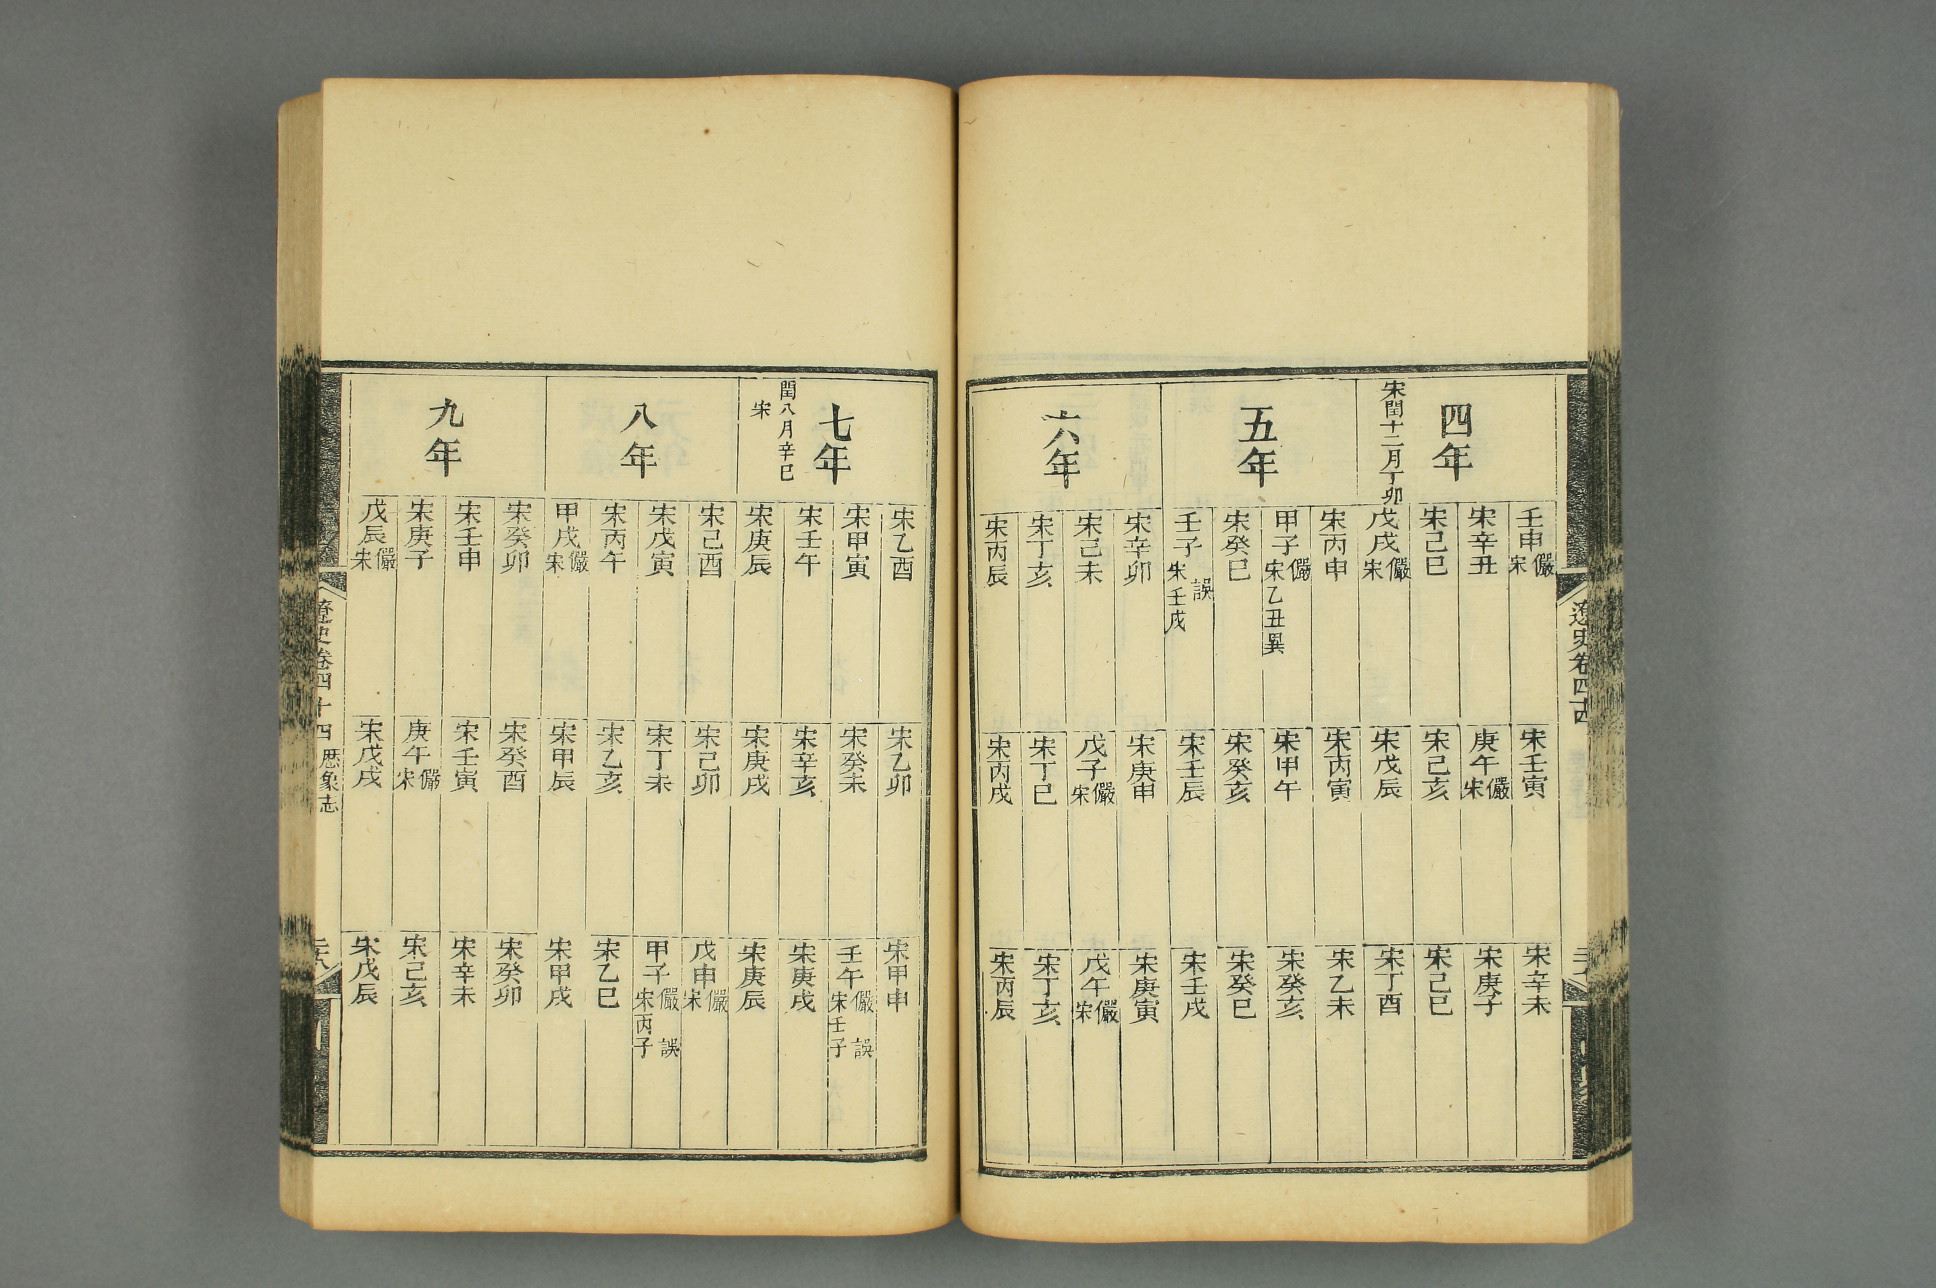 遼史卷四十四
四年
宋閏十二月丁卯
壬申儼宋
宋壬寅
宋辛未
宋辛丑
庚午儼宋
宋庚子
宋己巳
宋己亥
宋己巳
戊戌儼宋
宋戊辰
宋丁酉
五年
宋丙申
宋丙寅
宋乙未
甲子儼宋乙丑異
宋甲午
宋癸亥
宋癸巳
宋癸亥
宋癸巳
壬子誤宋壬戌
宋壬辰
宋壬戌
六年
宋辛卯
宋庚申
宋庚寅
宋己未
戊子儼宋
戊午儼宋
宋丁亥
宋丁巳
宋丁亥
宋丙辰
宋丙戌
宋丙辰
七年
閏八月辛巳
宋
宋乙酉
宋乙卯
宋甲申
宋甲寅
宋癸未
壬午儼誤宋壬子
宋壬午
宋辛亥
宋庚戌
宋庚辰
宋庚戌
宋庚辰
八年
宋己酉
宋己卯
戊申儼宋
宋戊寅
宋丁未
甲子儼誤宋丙子
宋丙午
宋乙亥
宋乙巳
甲戌儼宋
宋甲辰
宋甲戌
九年
宋癸卯
宋癸酉
宋癸卯
宋壬申
宋壬寅
宋辛未
宋庚子
庚午儼宋
宋己亥
戊辰儼宋
宋戊戌
宋戊辰
遼史卷四十四 歷象志